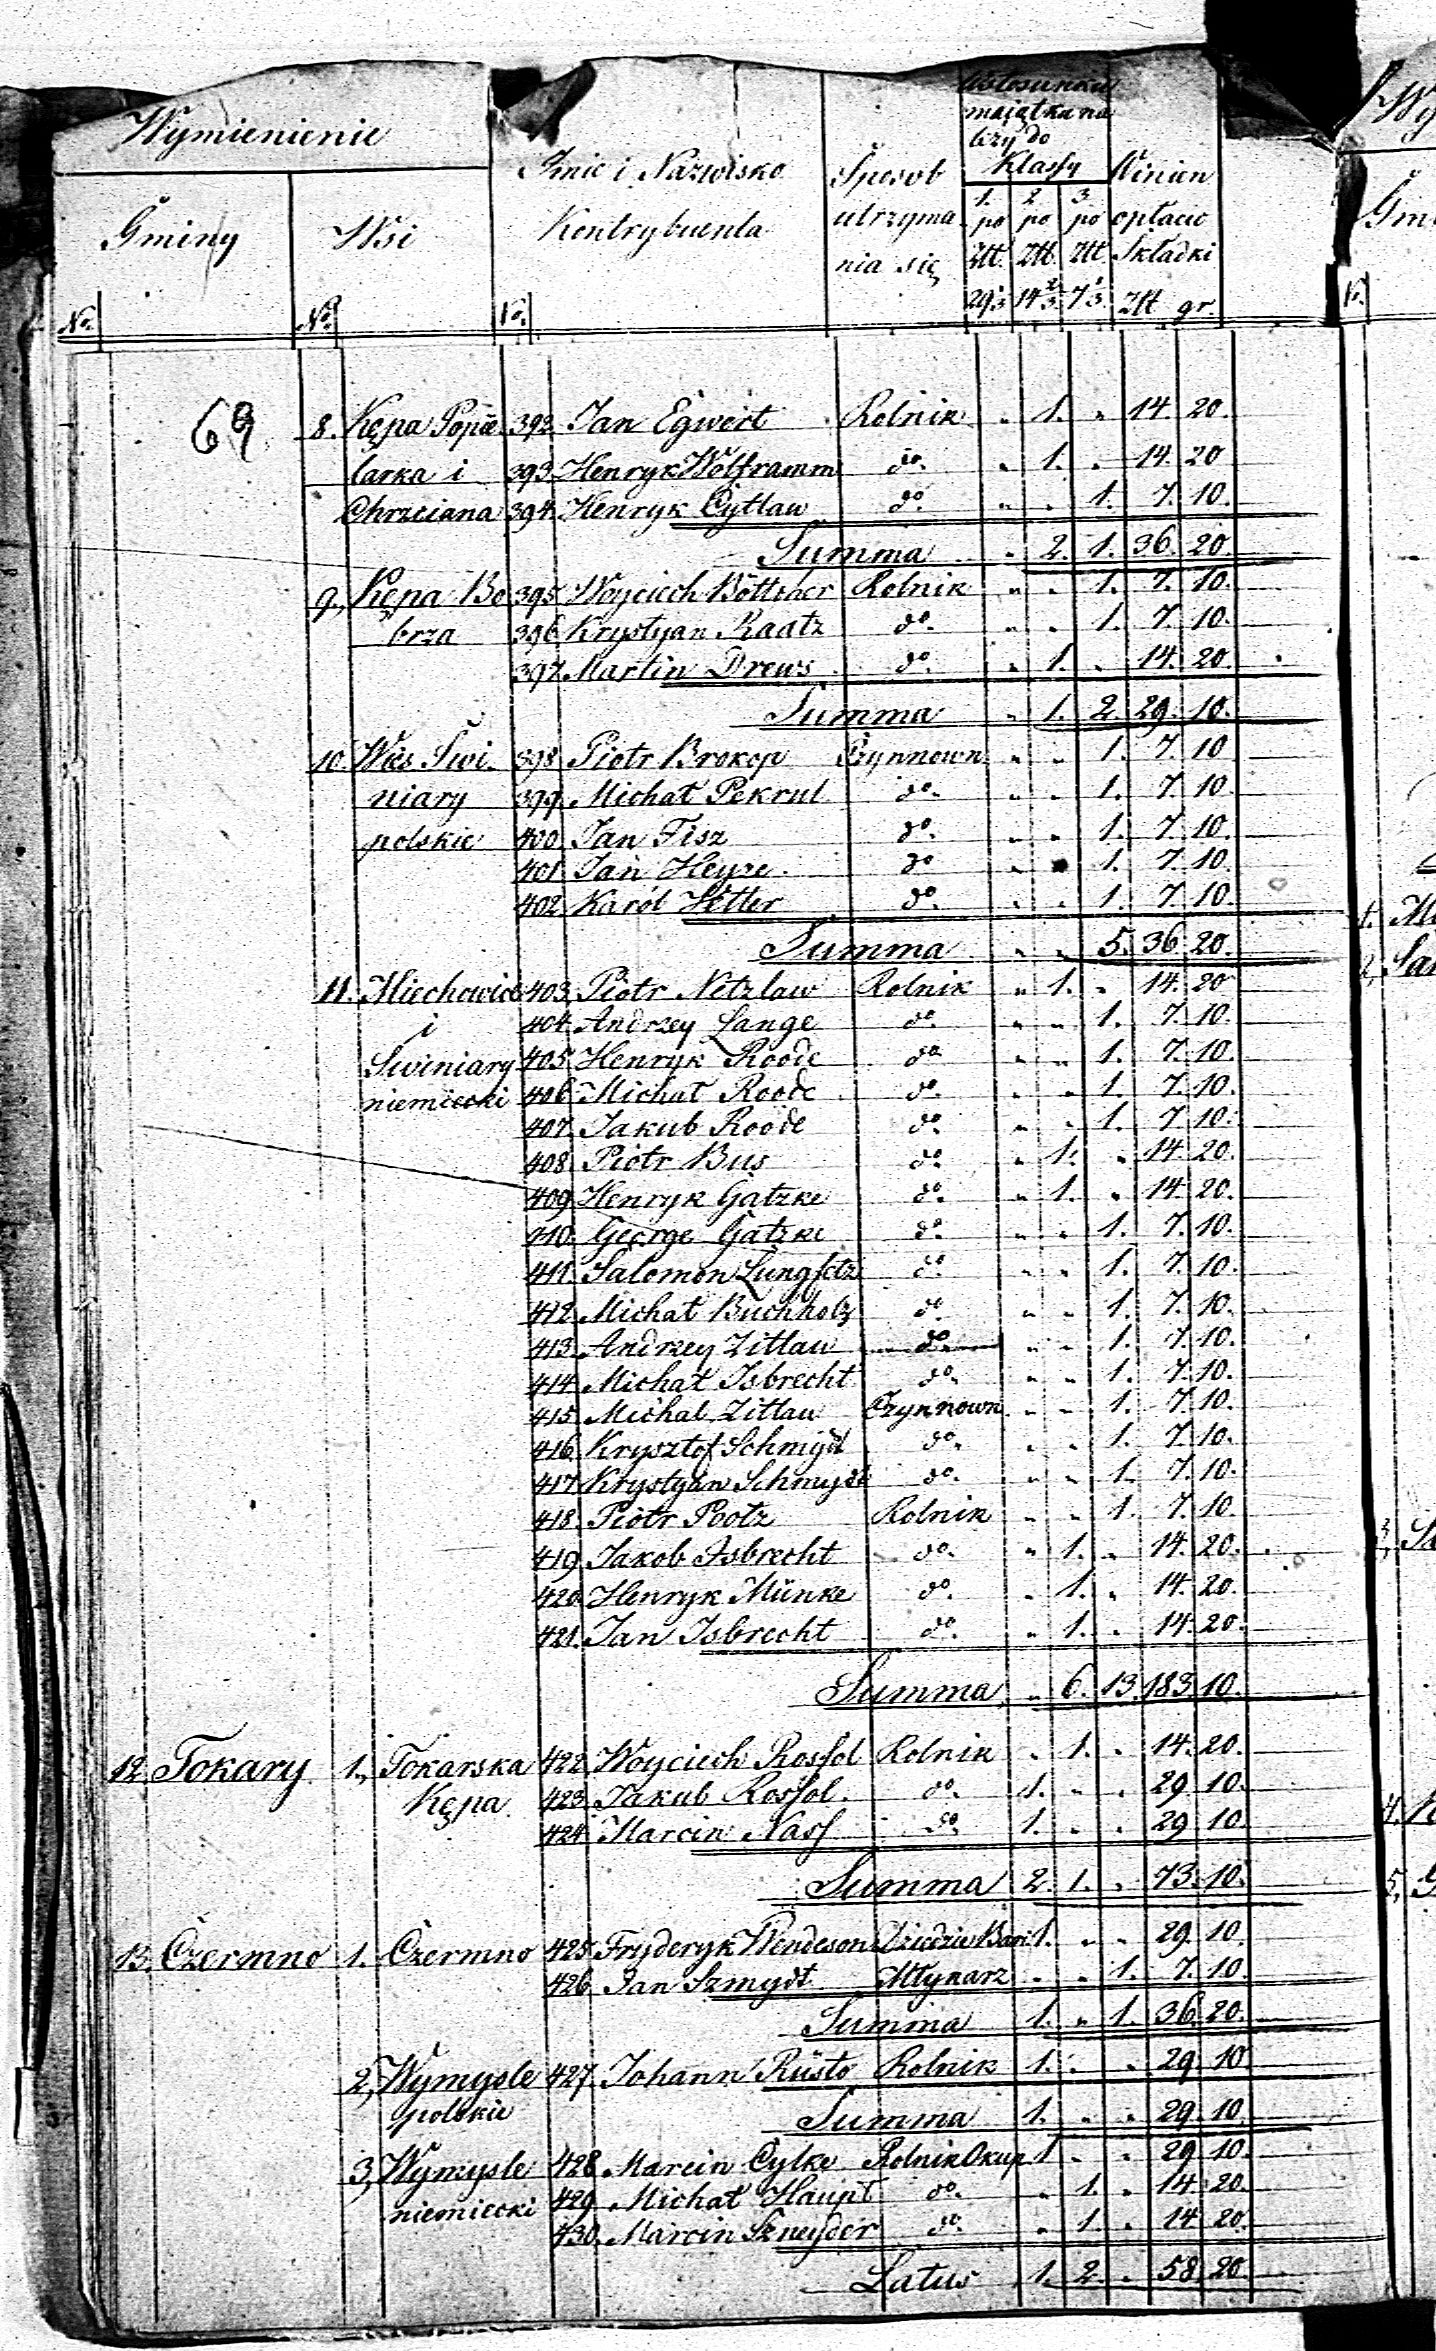 Wymienienie
Gminy
Wsi
Imie i Nazwisko
Kontrybuenta
Sposob
utrzyma
nia się
Wstosunku
maiątku na
leży do
Klassy
1. 2. 3.
po po po
Złt. Złt. Złt.
29⅓ 14⅔ 7⅓
Winien
opłacić
Składki
Złt gr.
No. No. No.
69
8. Kępa Popie 392 Jan Egwert Rolnik " 1. " 14. 20.
larka i 393 Henryk Wolframm do. " 1. " 14. 20
Chrzciana 394. Henryk Cytlaw do. " " 1. 7. 10.
Summa " 2. 1. 36. 20
9. Kępa Bo 395 Woyciech Böttcher Rolnik " " 1. 7. 10.
brza 396 Krystyan Raatz do. " " 1. 7. 10.
397. Martin Drews do. " 1. " 14. 20.
Summa " 1. 2. 29. 10.
10. Wies Swi 398 Piotr Brokop Czynnown " " 1. 7. 10
niary 399. Michał Pekrul do. " " 1. 7. 10
polskie 400. Jan Fisz do. " " 1. 7. 10.
401. Jan Heyze do " " 1. 7. 10.
402. Karól Vetter do. " " 1. 7. 10.
Summa " " 5. 36. 20.
11. Miechowice 403. Piotr Netzlaw Rolnik " 1. " 14. 20
i 404. Andrzey Lange do. " " 1. 7. 10.
Swiniary 405. Henryk Roode do. " " 1. 7. 10.
niemiecki 406. Michał Roode do. " " 1. 7. 10.
407. Jakub Roode do. " " 1. 7. 10.
408. Piotr Bus do. " 1. " 14. 20.
409. Henryk Gatzke do. " 1. " 14. 20.
410. George Gatzke do. " " 1. 7. 10.
411. Salomon do. " " 1. 7. 10.
412. Michał Buchholz do. " " 1. 7. 10.
413. Andrzey Zitlau do. " " 1. 7. 10.
414. Michał Isbrecht do. " " 1. 7. 10.
415. Michał Zitlau Czynnown " " 1. 7. 10.
416. Krysztof Schmydt do. " " 1. 7. 10.
417. Krystyan Schmydt do. " " 1. 7. 10.
418. Piotr Rolnik " " 1. 7. 10.
419. Jakob Isbrecht do. " 1. " 14. 20.
420. Henryk Münke do. " 1. " 14. 20.
421. Jan Isbrecht do. " 1. " 14. 20.
Summa " 6. 13. 183. 10.
12. Tokary 1. Tokarska 422. Woyciech Rossol Rolnik " 1. " 14. 20.
Kępa 423. Jakub Rossol do. 1. " " 29. 10.
424. Marcin Nass do. 1. " " 29. 10.
Summa 2. 1. " 73. 10.
13. Czermno 1. Czermno 425. Fryderyk 1. " " 29. 10.
426. Jan Szmydt Młynarz " " 1. 7. 10.
Summa 1. " 1. 36. 20.
2. Wymysle 427. Johann Rüsto Rolnik 1. " " 29. 10
polskie Summa 1. " " 29. 10.
3. Wymysle 428. Marcin Cylke Rolnik Okup 1 " " 29. 10.
niemiecki 429. Michał Haupt do. " 1. " 14. 20.
430. Marcin Szneyder do. " 1. " 14. 20.
Latus 1. 2. " 58. 20.